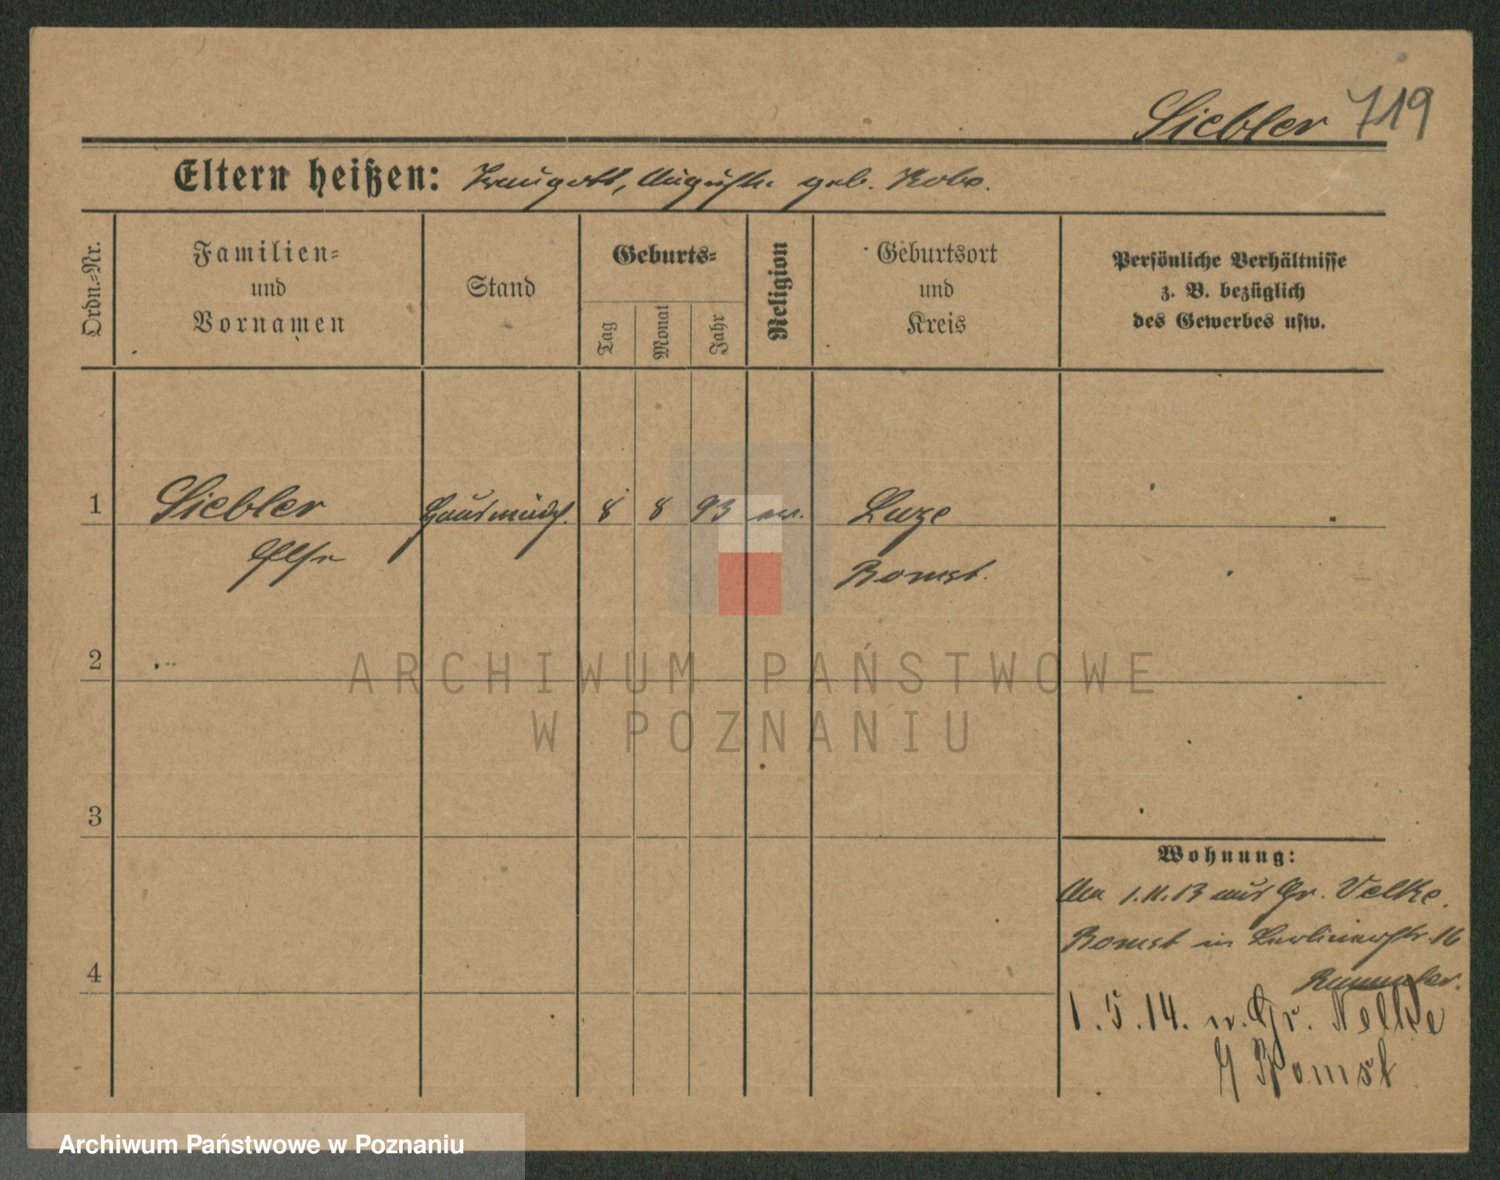 Siebler 719
Eltern heißen: Traugott, Auguste geb.
Ordn.-Nr.
Familien-
und
Vornamen
Stand
Geburts-
Tag
Monat
Jahr
Religion
Geburtsort
und
Kreis
Persönliche Verhältnisse
z. B. bezüglich
des Gewerbes usw.
1 Siebler Hausmädch. 8 8 93 ev. Luze
Else Bomst.
2
ARCHIWUM PAŃSTWOWE
W POZNANIU
3
Wohnung:
1.11.13 aus Gr. Nelke.
Bomst in Berlinerstr. 16
4
1.5.14. n. Gr. Nelke
Bomst
Archiwum Państwowe w Poznaniu